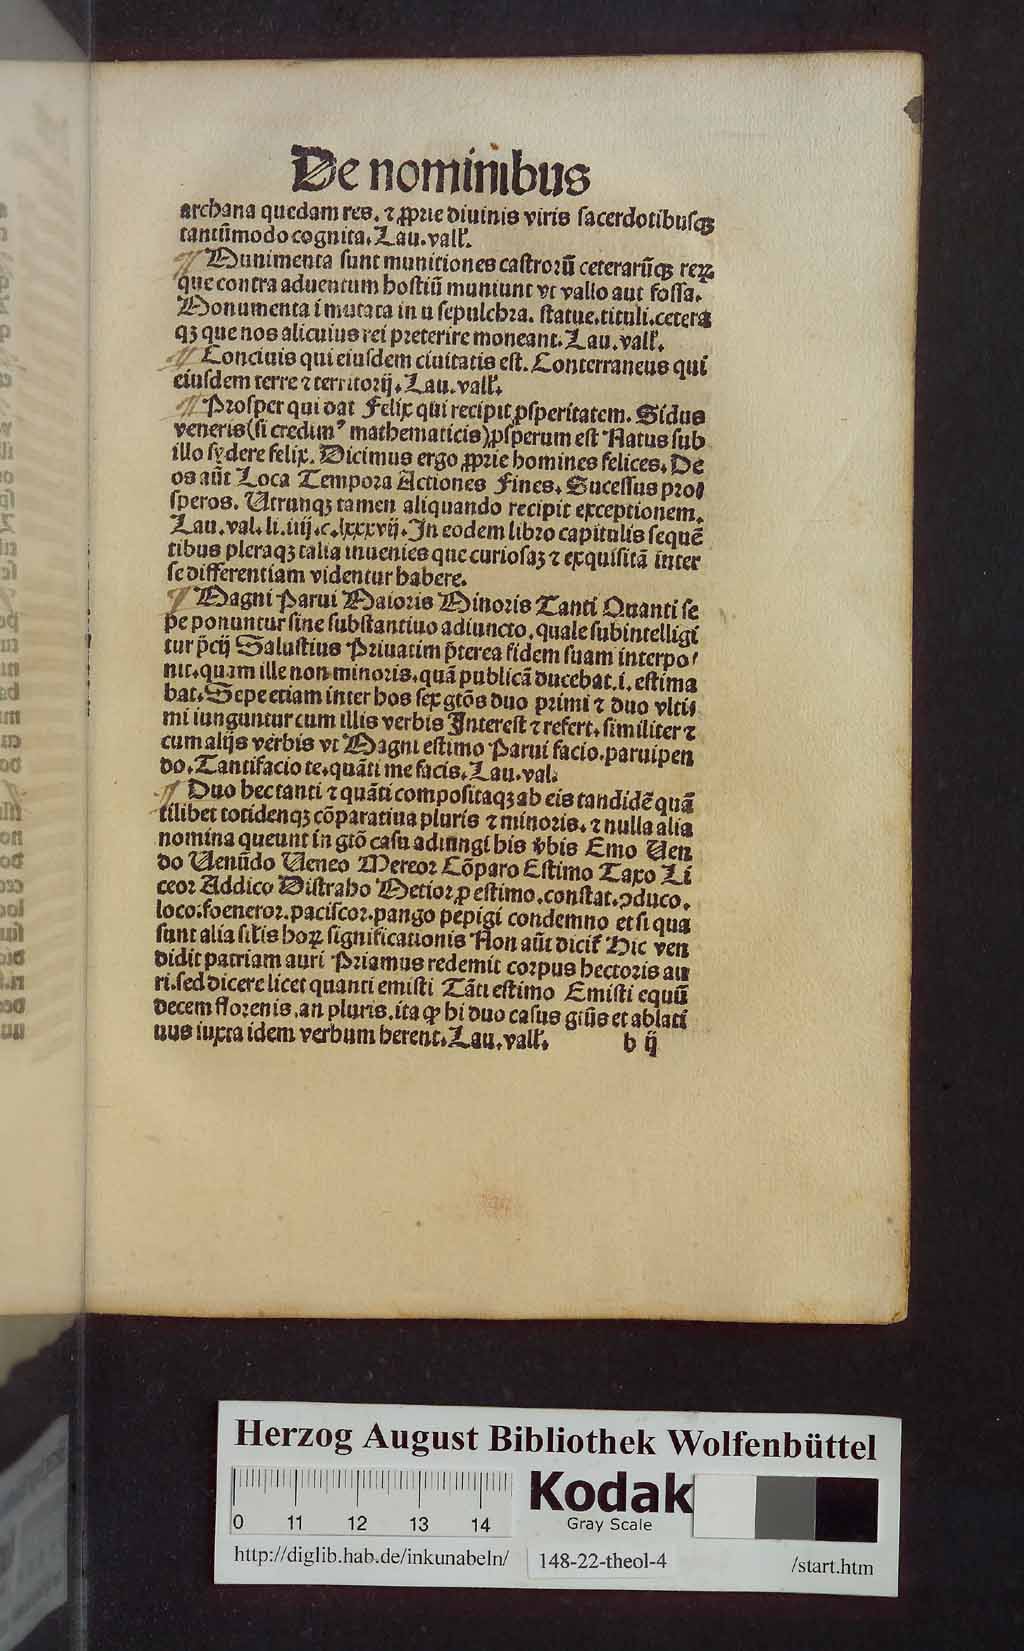 De nominibus
archana quedam res. ⁊ ꝓprie diuinis viris sacerdotibusqꝫ
tantūmodo cognita. Lau. vall̛.
¶ Munimenta sunt munitiones castrorū ceterarūqꝫ reꝝ
que contra aduentum hostiū muniunt vt vallo aut fossa.
Monumenta i mutata in u sepulchra. statue. tituli. cetera
qꝫ que nos alicuius rei preterire moneant. Lau. vall̛.
¶ Conciuis qui eiusdem ciuitatis est. Conterraneus qui
eiusdem terre ⁊ territorij. Lau. vall̛.
¶ Prosper qui dat Felix qui recipit ꝓsperitatem. Sidus
veneris (si credimꝰ mathematicis) ꝓsperum est Natus sub
illo sydere felix. Dicimus ergo ꝓprie homines felices. De
os aūt Loca Tempora Actiones Fines. Sucessus pro/
speros. Utrunqꝫ tamen aliquando recipit exceptionem.
Lau. val. li. iiij. c. lxxxvij. In eodem libro capitulis sequē
tibus pleraqꝫ talia inuenies que curiosaꝫ ⁊ exquisitā inter
se differentiam videntur habere.
¶ Magni Parui Maioris Minoris Tanti Quanti se
pe ponuntur sine substantiuo adiuncto. quale subintelligi
tur p̄cij Salustius Priuatim p̄terea fidem suam interpo/
nit. quam ille non minoris. quā publicā ducebat. i. estima
bat. Sepe etiam inter hos sex gtōs duo primi ⁊ duo vlti/
mi iunguntur cum illis verbis Interest ⁊ refert. similiter ⁊
cum alijs verbis vt Magni estimo Parui facio. paruipen
do. Tantifacio te. quāti me facis. Lau. val.
¶ Duo hec tanti ⁊ quāti compositaqꝫ ab eis tandidē quā
tilibet totidenqꝫ cōparatiua pluris ⁊ minoris. ⁊ nulla alia
nomina queunt in gtō casu adiungi his v̄bis Emo Uen
do Uenūdo Ueneo Mereor Cōparo Estimo Taxo Li
ceor Addico Distraho Metior ꝓ estimo. constat. ꝯduco.
loco. foeneror. paciscor. pango pepigi condemno et si qua
sunt alia sil̛is hoꝝ significationis Non aūt dicit̛ Hic ven
didit patriam auri Priamus redemit corpus hectoris au
ri. sed dicere licet quanti emisti Tāti estimo Emisti equū
decem florenis. an pluris. ita ꝙ hi duo casus gtūs et ablati
uus iuxta idem verbum herent. Lau. vall̛. b ij
Herzog August Bibliothek Wolfenbüttel
Kodak
Gray Scale
0 11 12 13 14
http://diglib.hab.de/inkunabeln/ 148-22-theol-4 /start.htm